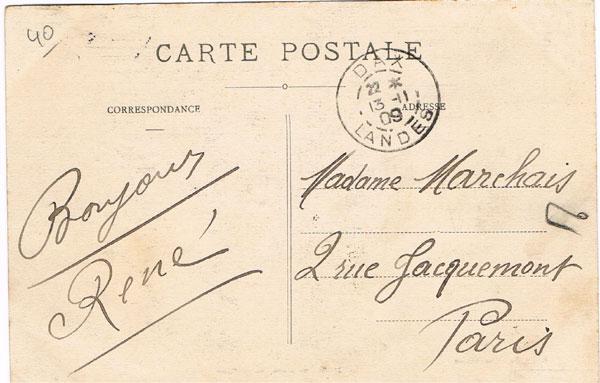 40
CARTE POSTALE
CORRESPONDANCE
ADRESSE
DAX
22 * 
13 -11
09
LANDES
Bonjour
René
Madame Marchais
2 rue Jacquemont
Paris